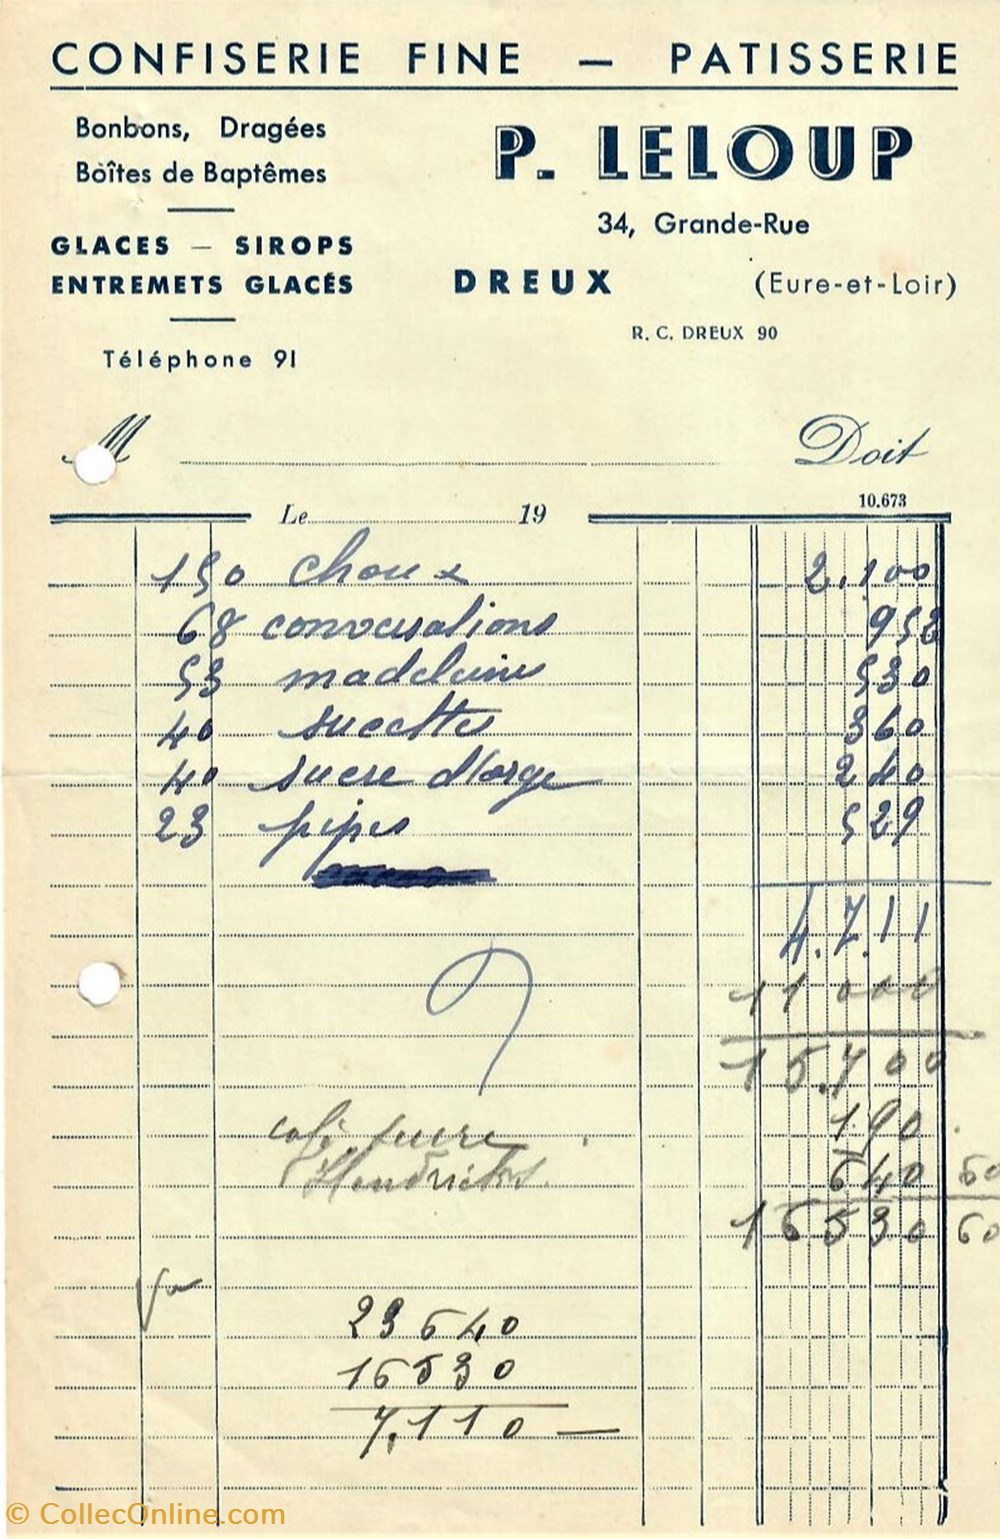 CONFISERIE FINE — PATISSERIE
Bonbons, Dragées
Boîtes de Baptêmes
GLACES — SIROPS
ENTREMETS GLACÉS
Téléphone 91
P. LELOUP
34, Grande-Rue
DREUX (Eure-et-Loir)
R. C. DREUX 90
M Doit
Le 19 10.673
150 choux 2.100
68 conversations 952
53 madeleines 530
40 sucettes 360
40 sucre d'orge 240
23 pipes 529
4.711
11000
15.700
café sucre 190
Hendricks. 640 60
16530 60
23640
16530
7.110 —
© CollecOnline.com